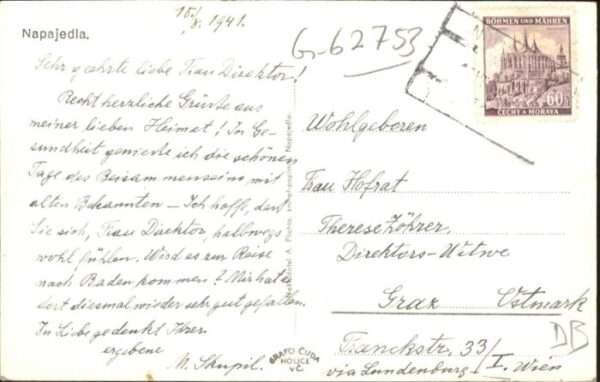 Napajedla.
10./8. 1941.
Sehr geehrte liebe Frau Direktor!
Recht herzliche Grüsse aus
meiner lieben Heimat! In Ge-
sundheit geniesse ich die schönen
Tage des Beisammenseins mit
alten Bekannten – Ich hoffe, dass
Sie sich, Frau Direktor, halbwegs
wohl fühlen. Wird es zur Reise
nach Baden kommen? Mir hat es
dort diesmal wieder sehr gut gefallen.
In Liebe gedenkt Ihrer
ergebene
M. Skupil.
G-62753
BÖHMEN UND MÄHREN
60
ČECHY A MORAVA
Wohlgeboren
Frau Hofrat
Therese Zöhrer,
Direktors-Witwe
Graz Ostmark
Franckstr. 33/I.
via Lundenburg, Wien
DB
GRAFO ČUDA
HOLICE
v.Č.
Napajedla.